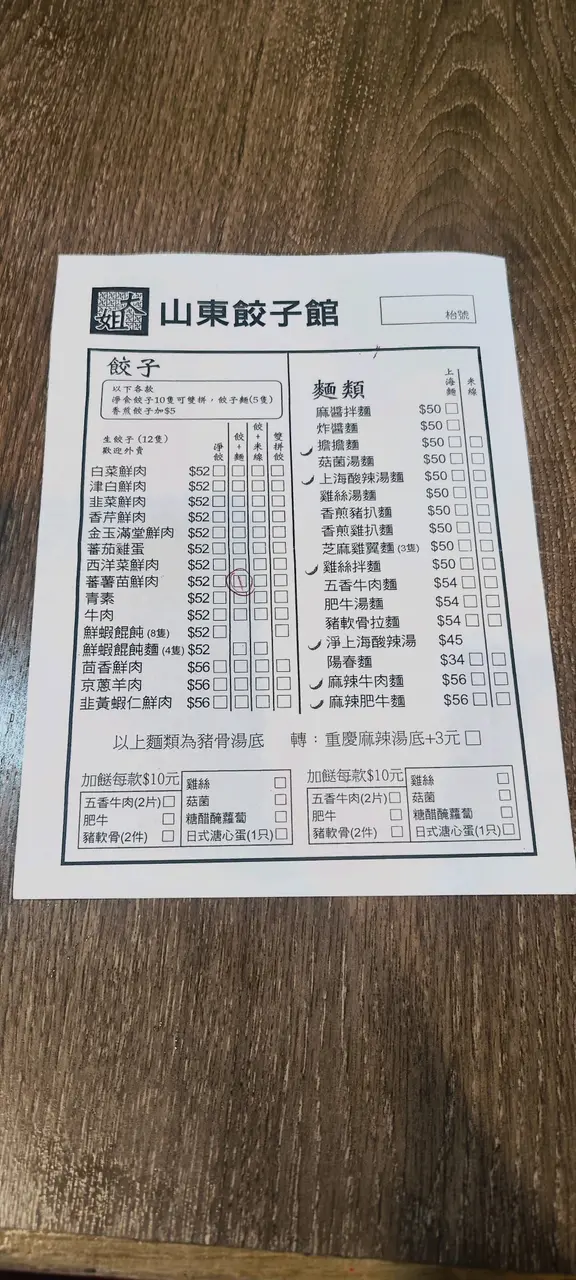 大姐
山東餃子館
枱號
餃子
以下各款
淨食餃子10隻可雙拼，餃子麵(5隻)
香煎餃子加$5
生餃子 (12隻)
歡迎外賣
淨餃 餃+麵 餃+米線 雙拼餃
白菜鮮肉 $52
津白鮮肉 $52
韭菜鮮肉 $52
香芹鮮肉 $52
金玉滿堂鮮肉 $52
蕃茄雞蛋 $52
西洋菜鮮肉 $52
蕃薯苗鮮肉 $52
青素 $52
牛肉 $52
鮮蝦餛飩 (8隻) $52
鮮蝦餛飩麵 (4隻) $52
茴香鮮肉 $56
京蔥羊肉 $56
韭黃蝦仁鮮肉 $56
麵類
上海麵 米線
麻醬拌麵 $50
炸醬麵 $50
擔擔麵 $50
菇菌湯麵 $50
上海酸辣湯麵 $50
雞絲湯麵 $50
香煎豬扒麵 $50
香煎雞扒麵 $50
芝麻雞翼麵 (3隻) $50
雞絲拌麵 $50
五香牛肉麵 $54
肥牛湯麵 $54
豬軟骨拉麵 $54
淨上海酸辣湯 $45
陽春麵 $34
麻辣牛肉麵 $56
麻辣肥牛麵 $56
以上麵類為豬骨湯底 轉：重慶麻辣湯底+3元
加餸每款$10元
五香牛肉(2片)
肥牛
豬軟骨(2件)
雞絲
菇菌
糖醋醃蘿蔔
日式溏心蛋(1只)
加餸每款$10元
五香牛肉(2片)
肥牛
豬軟骨(2件)
雞絲
菇菌
糖醋醃蘿蔔
日式溏心蛋(1只)